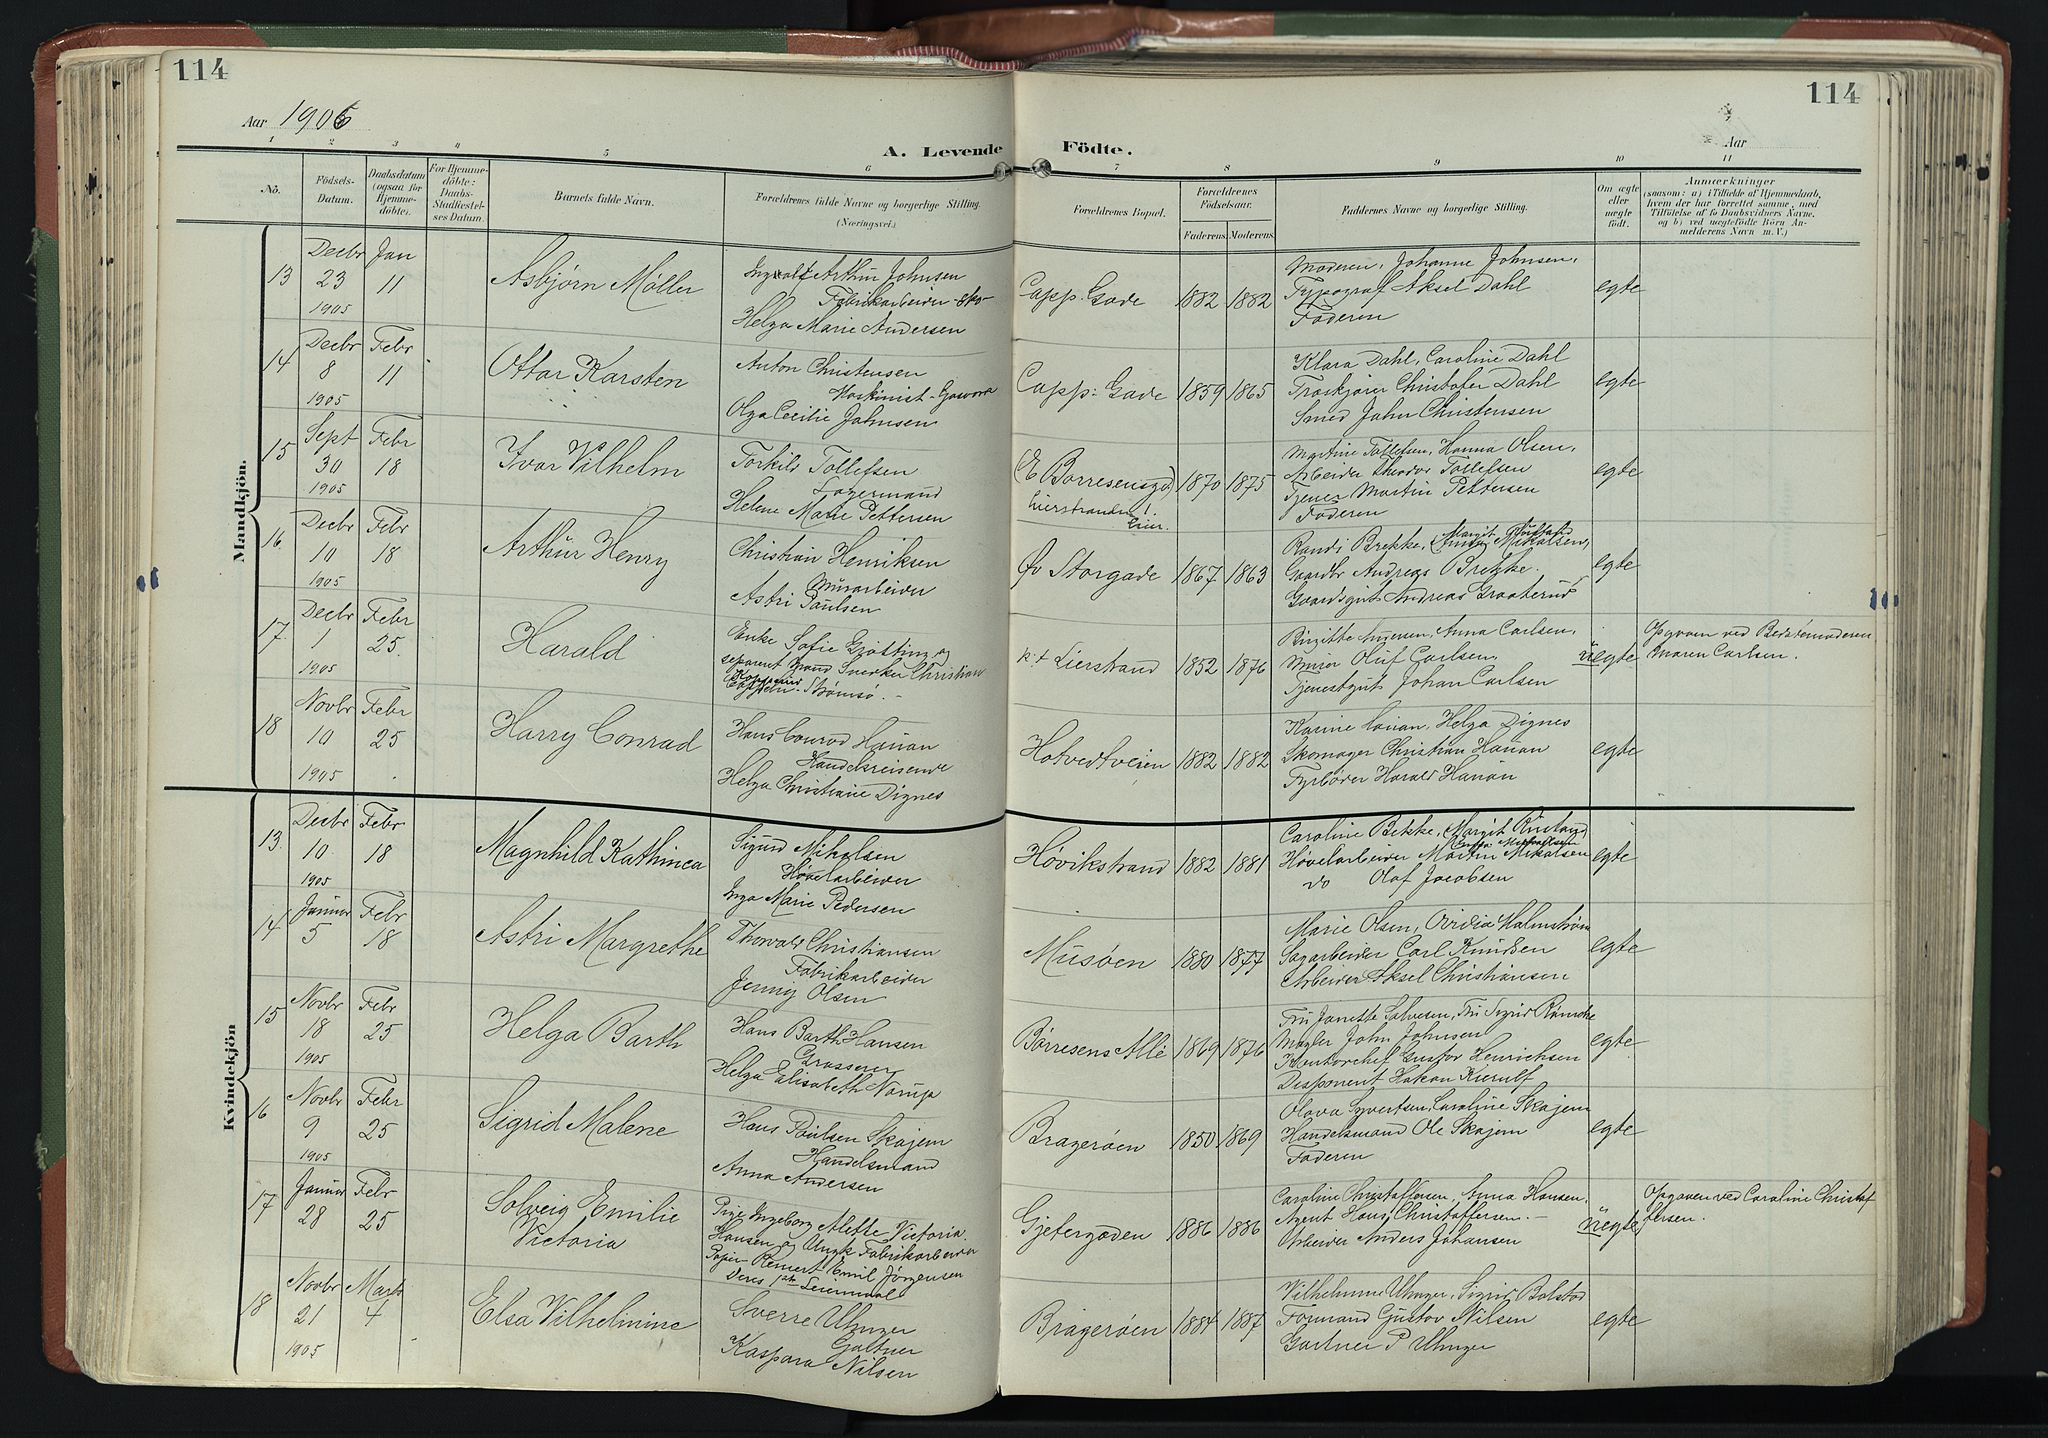 114
114
Aar 1906
A. Levende Födte.
Aar
1 2 3 4 5 6 7 8 9 10 11
No.
Födsels-Datum.
Daabsdatum (ogsaa for Hjemmedöbte).
For Hjemmedöbte: Daabs-Stadfestelses Datum.
Barnets fulde Navn.
Forældrenes fulde Navne og borgerlige Stilling. (Næringsvei.)
Forældrenes Bopæl.
Forældrenes Födselsaar.
Faderens. Moderens.
Faddernes Navne og borgerlige Stilling.
Om ægte eller uægte födt.
Anmærkninger
(saasom: a) i Tilfælde af Hjemmedaab, hvem der har forrettet samme, med Tilföielse af to Daabsvidners Navne, og b) ved uægtefödte Börn Anmelderens Navn m. V.)
Mandkjön.
13 Decbr 23 1905 Jan 11 Asbjørn Møller
Arthur Johnsen
Fabrikarbeider
Helga Marie Andersen
Capp. Gade 1882 1882
Moderen, Johanne Johnsen,
Typograf Aksel Dahl
Faderen
egte
14 Decbr 8 1905 Febr 11 Ottar Karsten
Anton Christensen
Maskinist
Olga Cecilie Johnsen
Capp: Gade 1859 1865
Klara Dahl, Caroline Dahl
Christofer Dahl
Smed John Christensen
egte
15 Sept 30 1905 Febr 18 Ivar Vilhelm
Torkild Tollefsen
Lagermand
Helene Marie Pettersen
Lierstranden 1870 1875
Martine Tollefsen, Hanna Olsen,
Arbeider Theodor Tollefsen
Tjener Martin Pettersen
Faderen
egte
16 Decbr 10 1905 Febr 18 Arthur Henry
Christian Henriksen
Murarbeider
Astri Paulsen
Øv Storgade 1867 1863
Randi Brekke, Mikalsen,
Gaardbr Andreas Brekke.
Gaardsgut Andreas
egte
17 Decbr 1 1905 Febr 25. Harald
Enke Sofie Grøsting og
separert Mand Snerker Christian
Strømsø.
p.t Lierstrand 1852 1876
Birgitte Iversen, Anna Carlsen,
Murer Oluf Carlsen
Tjenestgut Johan Carlsen
uegte
Opgaven ved Bedstemoderen
Maren Carlsen.
18 Novbr 10 1905 Febr 25 Harry Conrad
Hans Conrad Hauan
Handelsreisende
Helga Christiane Dignes
Hotvedtveien 1882 1882
Karine Hauan, Helga Dignes
Skomager Christian Hauan
Fyrbøder Harald Hauan
egte
Kvindekjön
13. Decbr 10 1905 Febr 18 Magnhild Kathinca
Sigurd Mikalsen
Høvelarbeider
Inga Marie Pedersen
Høvikstrand 1882 1881
Caroline Bekke, Margit Rustand
Høvelarbeider Martin Mikalsen
do Olaf Jacobsen
egte
14 Januar 5 Febr 18 Astri Margrethe
Thorvald Christiansen
Fabrikarbeider
Jenny Olsen
Musøen 1880 1877
Marie Olsen, Ovidia Malmstrøm
Sagarbeider Carl Knudsen
Arbeider Aksel Christiansen
egte
15 Novbr 18 1905 Febr 25 Helga Barth
Hans Barth Hansen
Grosserer
Helga Elisabeth Narup
Børresens Allé 1869 1876
Fru Janette Salvesen, Fru Sigrid
Megler John Johnsen
Kontorchef Gustav Henrichsen
Disponent Hakon Kierulf
egte
16 Novbr 9 1905 Febr 25 Sigrid Malene
Hans Paulsen Skajem
Handelsmand
Anna Andersen
Bragerøen 1850 1869
Olava Syvertsen, Caroline Skajem
Handelsmand Ole Skajem
Faderen
egte
17 Januar 28 Febr 25 Solveig Emilie Victoria
Pige Ingeborg Alette Victoria
Hansen og Ungk Fabrikarbeider
Emil Jørgensen
Deres 1ste Leiermaal
Gjetergaden 1886 1886
Caroline Christoffersen, Anna Hansen,
Agent Hans Christoffersen.
Arbeider Anders Johansen
uegte
Opgaven ved Caroline Christof
fersen.
18 Novbr 21 1905 Marts 4 Elsa Vilhelmine
Sverre Unger
Gartner
Kaspara Nilsen
Bragerøen 1884 1887
Vilhelmine Unger, Sigrid Bolstad
Formand Gustav Nilsen
Gartner P Unger
egte